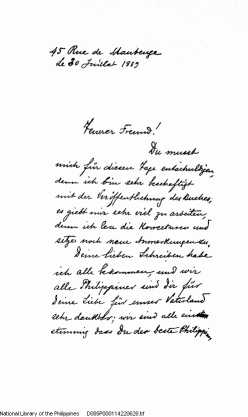 45 Rue de Maubeuge
le 30 Juillet 1889
Teurer Freund!
Du musst
mich für diesen Tage entschuldigen,
denn ich bin sehr beschäftigt
mit der Veröffentlichung des Buches,
es giebt mir sehr viel zu arbeiten,
denn ich lese die Korrecturen und
setze noch neue Anmerkungen zu.
Deine lieben Schreiben habe
ich alle bekommen, und wir
alle Philippiner sind dir für
deine Liebe für unser Vaterland
sehr dankbar; wir sind alle ein
stimmig dass Du der beste Philippin
National Library of the Philippines